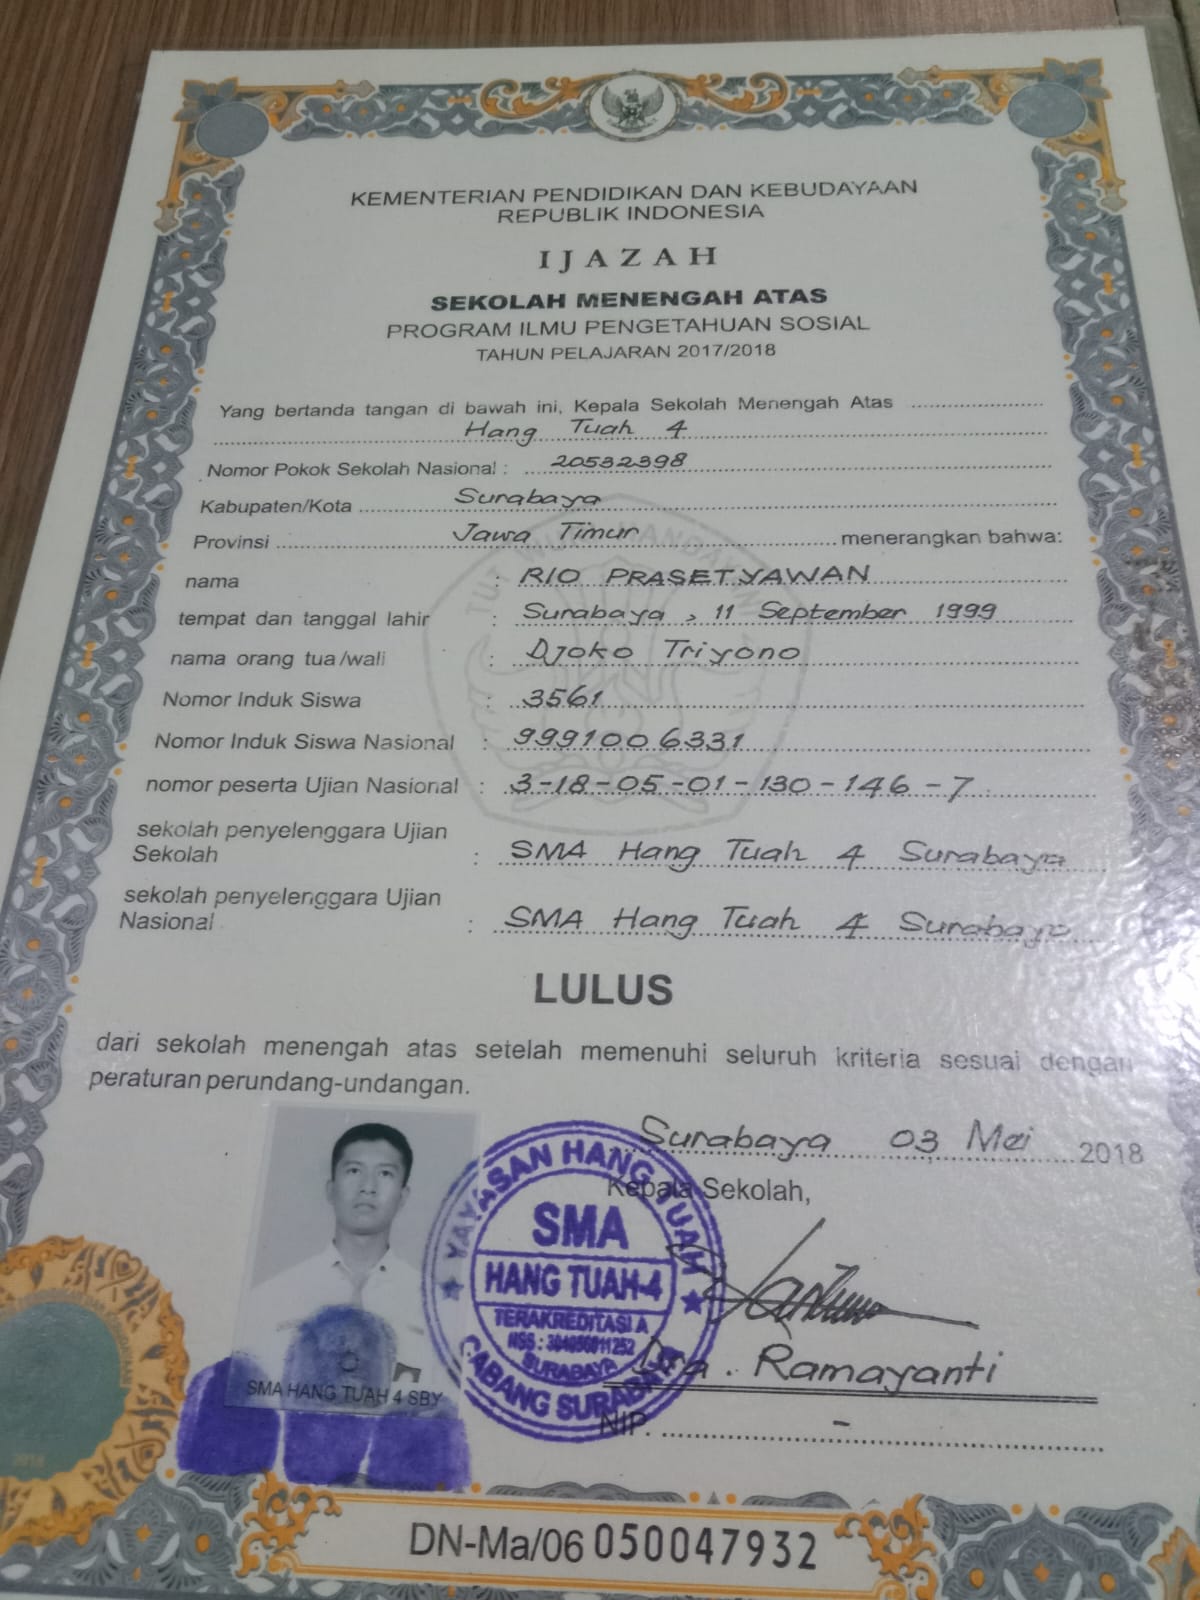 KEMENTERIAN PENDIDIKAN DAN KEBUDAYAAN
REPUBLIK INDONESIA
IJAZAH
SEKOLAH MENENGAH ATAS
PROGRAM ILMU PENGETAHUAN SOSIAL
TAHUN PELAJARAN 2017/2018
Yang bertanda tangan di bawah ini, Kepala Sekolah Menengah Atas
Hang Tuah 4
Nomor Pokok Sekolah Nasional : 20532398
Kabupaten/Kota Surabaya
Provinsi Jawa Timur menerangkan bahwa:
nama : RIO PRASETYAWAN
tempat dan tanggal lahir : Surabaya, 11 September 1999
nama orang tua/wali : Djoko Triyono
Nomor Induk Siswa : 3561
Nomor Induk Siswa Nasional : 9991006331
nomor peserta Ujian Nasional : 3-18-05-01-130-146-7
sekolah penyelenggara Ujian
Sekolah : SMA Hang Tuah 4 Surabaya
sekolah penyelenggara Ujian
Nasional : SMA Hang Tuah 4 Surabaya
LULUS
dari sekolah menengah atas setelah memenuhi seluruh kriteria sesuai dengan
peraturan perundang-undangan.
Surabaya 03 Mei 2018
Kepala Sekolah,
YAYASAN HANG TUAH
SMA
HANG TUAH-4
TERAKREDITASI A
SURABAYA
CABANG SURABAYA
Dra. Ramayanti
NIP. -
SMA HANG TUAH 4 SBY
DN-Ma/06 050047932